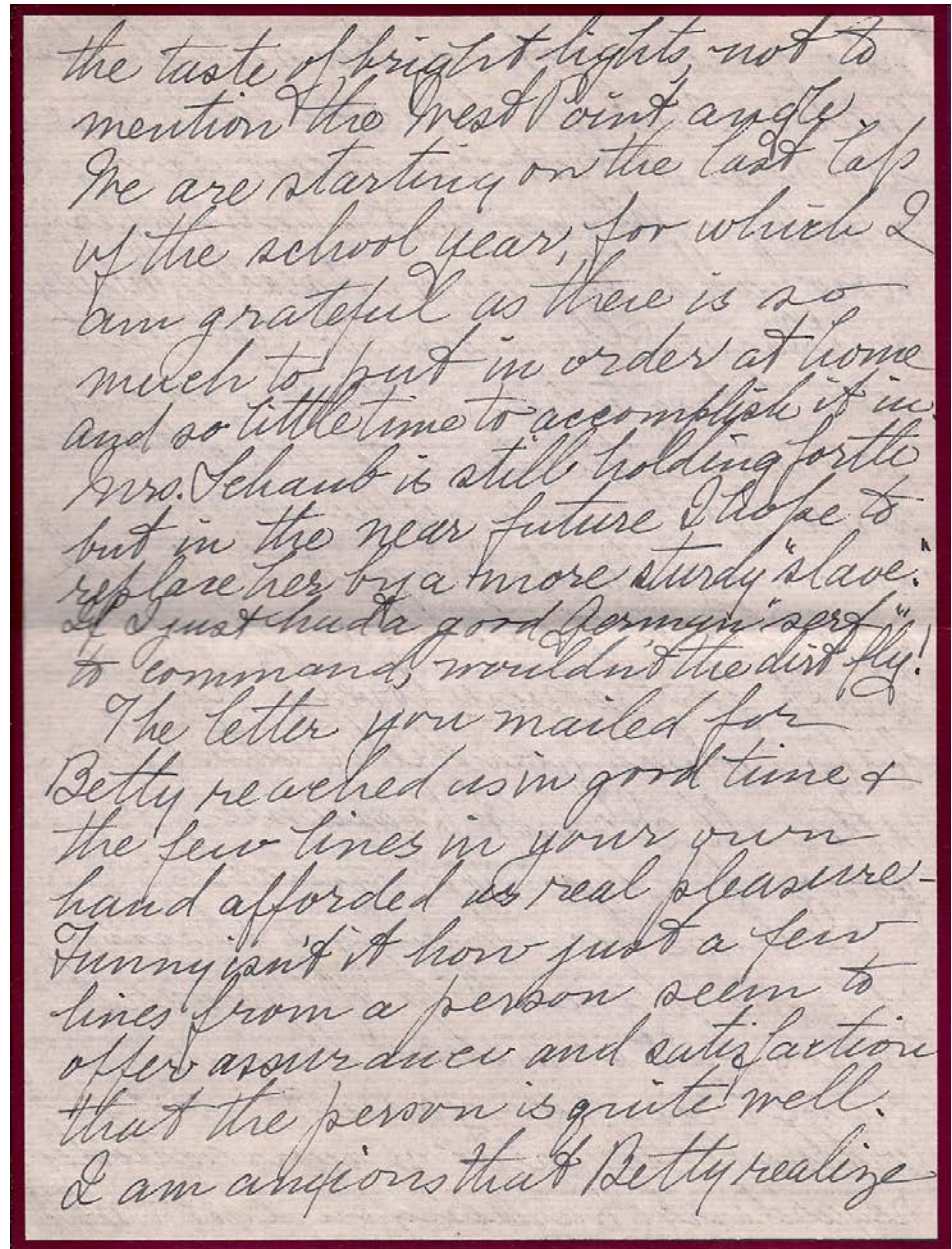 the taste of bright lights, not to
mention the West Point angle.
We are starting on the last lap
of the school year, for which I
am grateful as there is so
much to put in order at home
and so little time to accomplish it in.
Mrs. Schaub is still holding forth
but in the near future I hope to
replace her by a more sturdy "slave."
If I just had a good German "serf"
to command, wouldn't the dirt fly!
The letter you mailed for
Betty reached us in good time &
the few lines in your own
hand afforded us real pleasure -
Funny isn't it how just a few
lines from a person seem to
offer assurance and satisfaction
that the person is quite well.
I am anxious that Betty realize